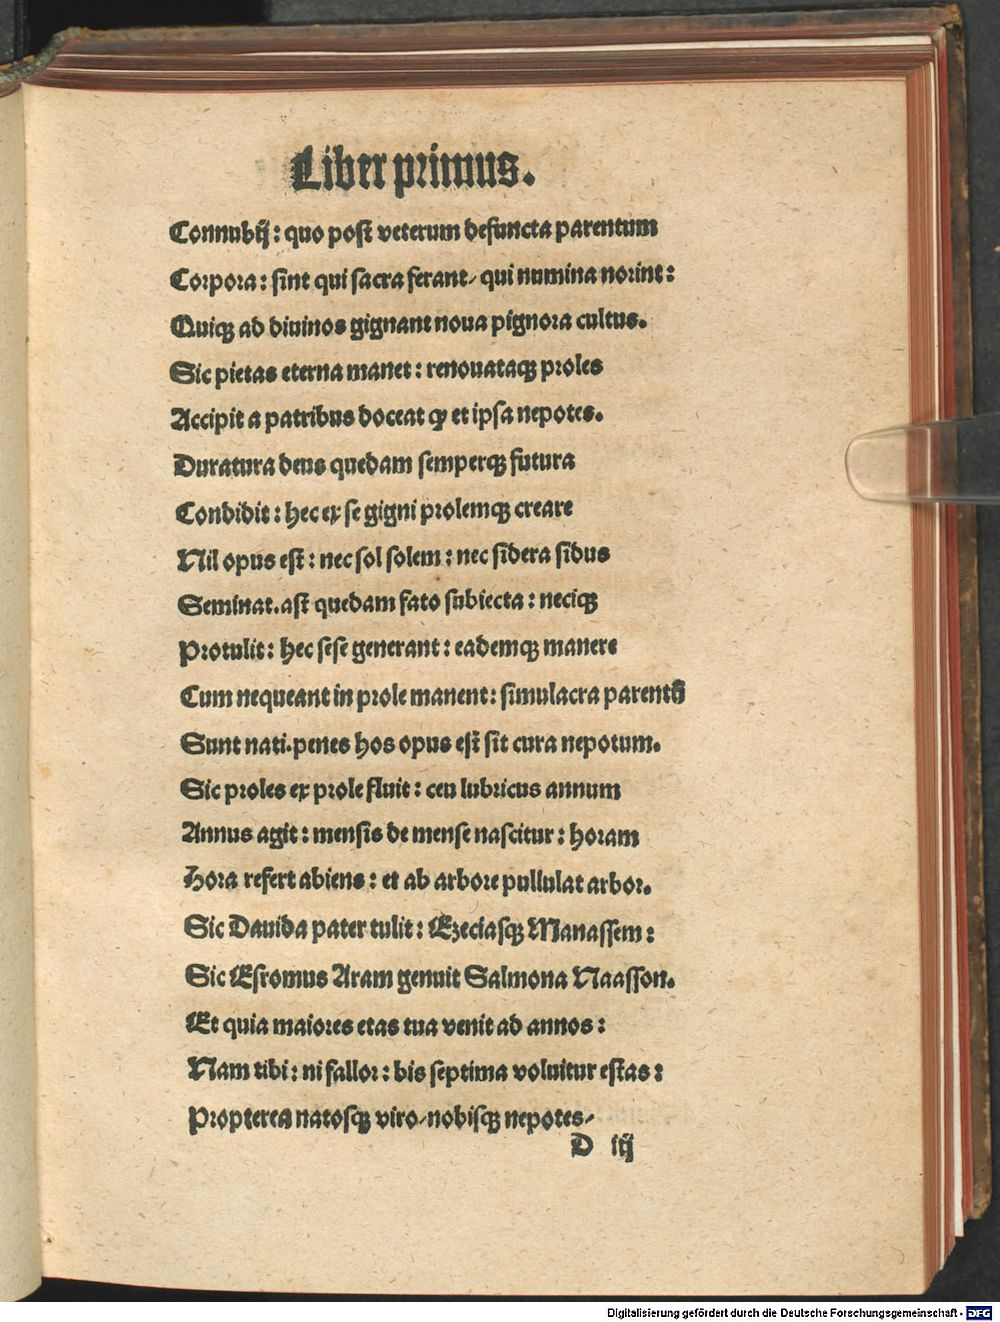 Liber primus.
Connubij: quo post veterum defuncta parentum
Corpora: sint qui sacra ferant/ qui numina norint:
Quiqꝫ ad diuinos gignant noua pignora cultus.
Sic pietas eterna manet: renouataqꝫ proles
Accipit a patribus doceat ꝙ et ipsa nepotes.
Duratura deus quedam semperqꝫ futura
Condidit: hec ex se gigni prolemqꝫ creare
Nil opus est: nec sol solem: nec sidera sidus
Seminat. ast quedam fato subiecta: neciqꝫ
Protulit: hec sese generant: eademqꝫ manere
Cum nequeant in prole manent: simulacra parentū
Sunt nati. penes hos opus est sit cura nepotum.
Sic proles ex prole fluit: ceu lubricus annum
Annus agit: mensis de mense nascitur: horam
Hora refert abiens: et ab arbore pullulat arbor.
Sic Dauida pater tulit: Ezeciasqꝫ Manassem:
Sic Esromus Aram genuit Salmona Naasson.
Et quia maiores etas tua venit ad annos:
Nam tibi: ni fallor: bis septima voluitur estas:
Propterea natosqꝫ viro/ nobisqꝫ nepotes/
D iij
Digitalisierung gefördert durch die Deutsche Forschungsgemeinschaft - DFG